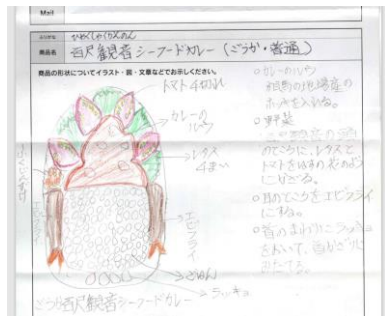 Mail
ふりがな
ひゃくしゃくかんのん
商品名
百尺観音シーフードカレー(ごうか・普通)
商品の形状についてイラスト・図・文章などでお示しください。
トマト4切れ
カレーの
ルパン
レタス
4まい
ふくじんづけ
エビフライ
エビフライ
ごはん
ラッキョ
ごうか百尺観音シーフードカレー
○カレーのルパン
相馬の地場産の
ホッキを入れる。
のところに、レタスと
トマトをはすの花のよう
にかざる。
○耳のところをエビフライ
にする。
○首のまわりにラッキョ
をおいて、首かざりに